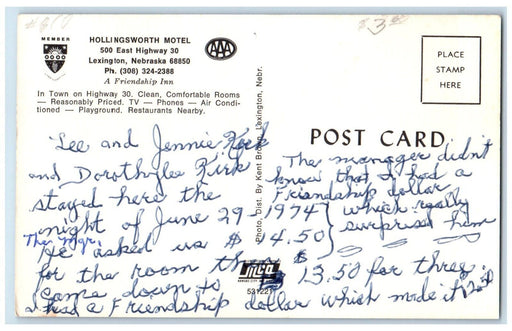 #617
$3.00
MEMBER
HOLLINGSWORTH MOTEL
500 East Highway 30
Lexington, Nebraska 68850
Ph. (308) 324-2388
A Friendship Inn
AAA
In Town on Highway 30. Clean, Comfortable Rooms
— Reasonably Priced. TV — Phones — Air Condi-
tioned — Playground. Restaurants Nearby.
PLACE
STAMP
HERE
POST CARD
Photo, Dist. By Kent Brown, Lexington, Nebr.
Lee and Jennie Kirk
and Dorothylee Kirk
stayed here the
night of June 29-1974
The Mgr.
He asked us $14.50
for the room then
came down to $13.50 for three.
I had a Friendship dollar which made it 12.50
The manager didn't
know that I had a
Friendship dollar
which really
surprised him
531227